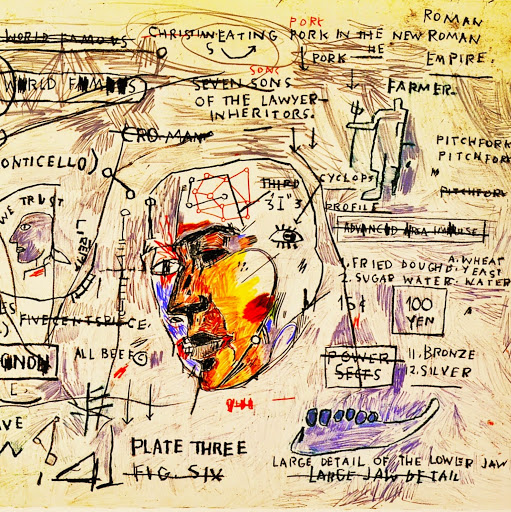 PORK
ROMAN
WORLD FAMOUS
CHRISTIAN EATING PORK IN THE NEW ROMAN
S
PORK
THE
EMPIRE.
WORLD FAMOUS
SONS
SEVEN SONS
OF THE LAWYER—
INHERITORS.
FARMER.
CRO-MAN
PITCHFORK
PITCHFORK
"
PITCHFORK
ONTICELLO)
THIRD
"3I"3
CYCLOPS
PROFILE
WE TRUST
LIBERTY
1. FRIED DOUGH:
2. SUGAR WATER:
A. WHEAT
YEAST
WATER
15¢
100
YEN
FIVE CENT PIECE.
ALL BEEF©
POWER
SECTS
11. BRONZE
12. SILVER
PLATE THREE
FIG. SIX
LARGE DETAIL OF THE LOWER JAW
LARGE JAW DETAIL